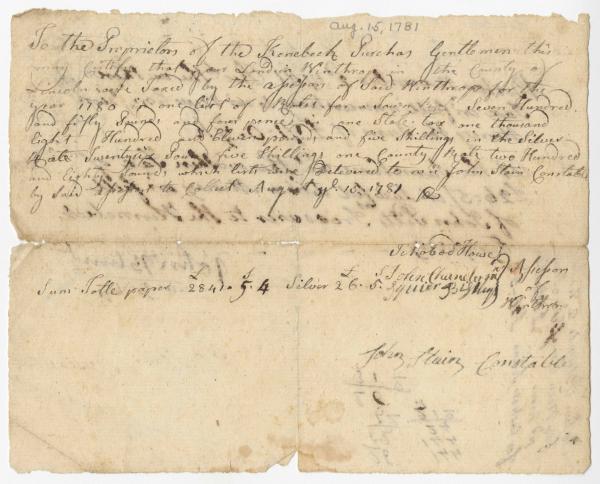 Aug. 15, 1781
To the Proprietors of the Kenebeck Purchas Gentlemen this
may Certifie that your Lands in Winthrop in the County of
Lincoln were Taxed by the assessors of Said Winthrop for the
year 1780 in one list of Seven Hundred
and fifty and four pence in one State tax one thousand
Eight Hundred and Eleven pounds and five Shillings in the Silver
Rate Twentysix Pounds five Shillings one County Rate two Hundred
and Eighty Pounds which lists were Delivered to me John Stain Constable
by said to Collect August ye 15 1781
Ichobod How
John Chandler Assessors
Sum Totle paper 2841. 5. 4 Silver £26. 5. Squier Bishop
John Stain Constable